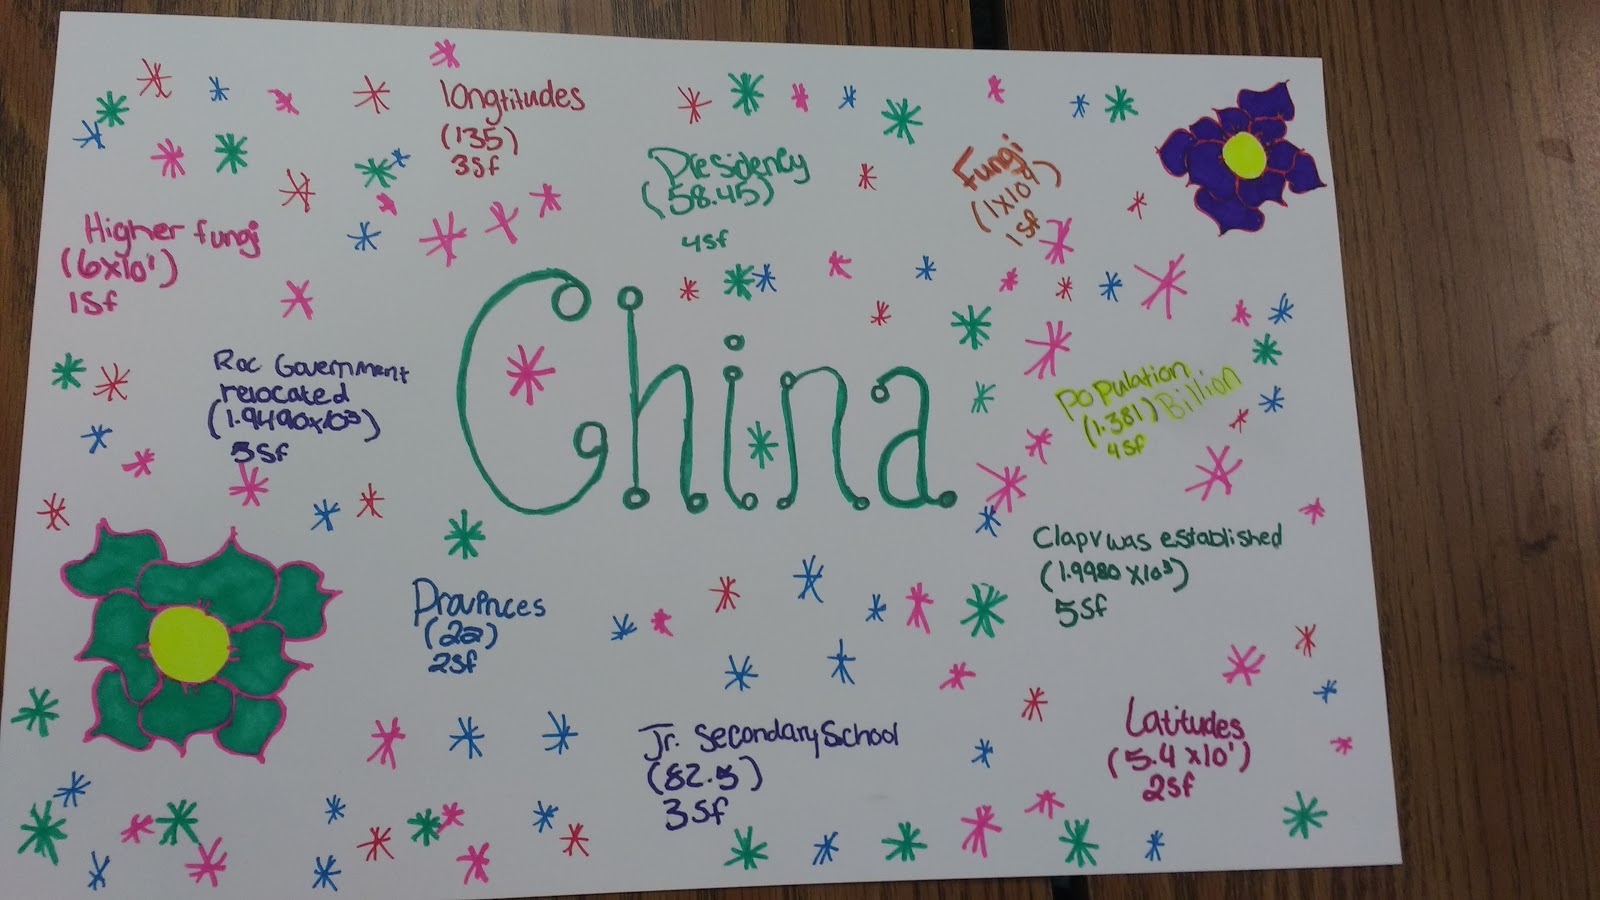 longtitudes
(135)
3sf
Presidency
(58.45)
4sf
Fungi
(1x10⁴)
1sf
Higher fungi
(6x10¹)
1sf
Roc Government
relocated
(1.9490x10³)
5sf
China
Population
(1.381) Billion
4sf
Clapv was established
(1.9980x10³)
5sf
Provinces
(22)
2sf
Jr. Secondary School
(82.5)
3sf
Latitudes
(5.4x10¹)
2sf